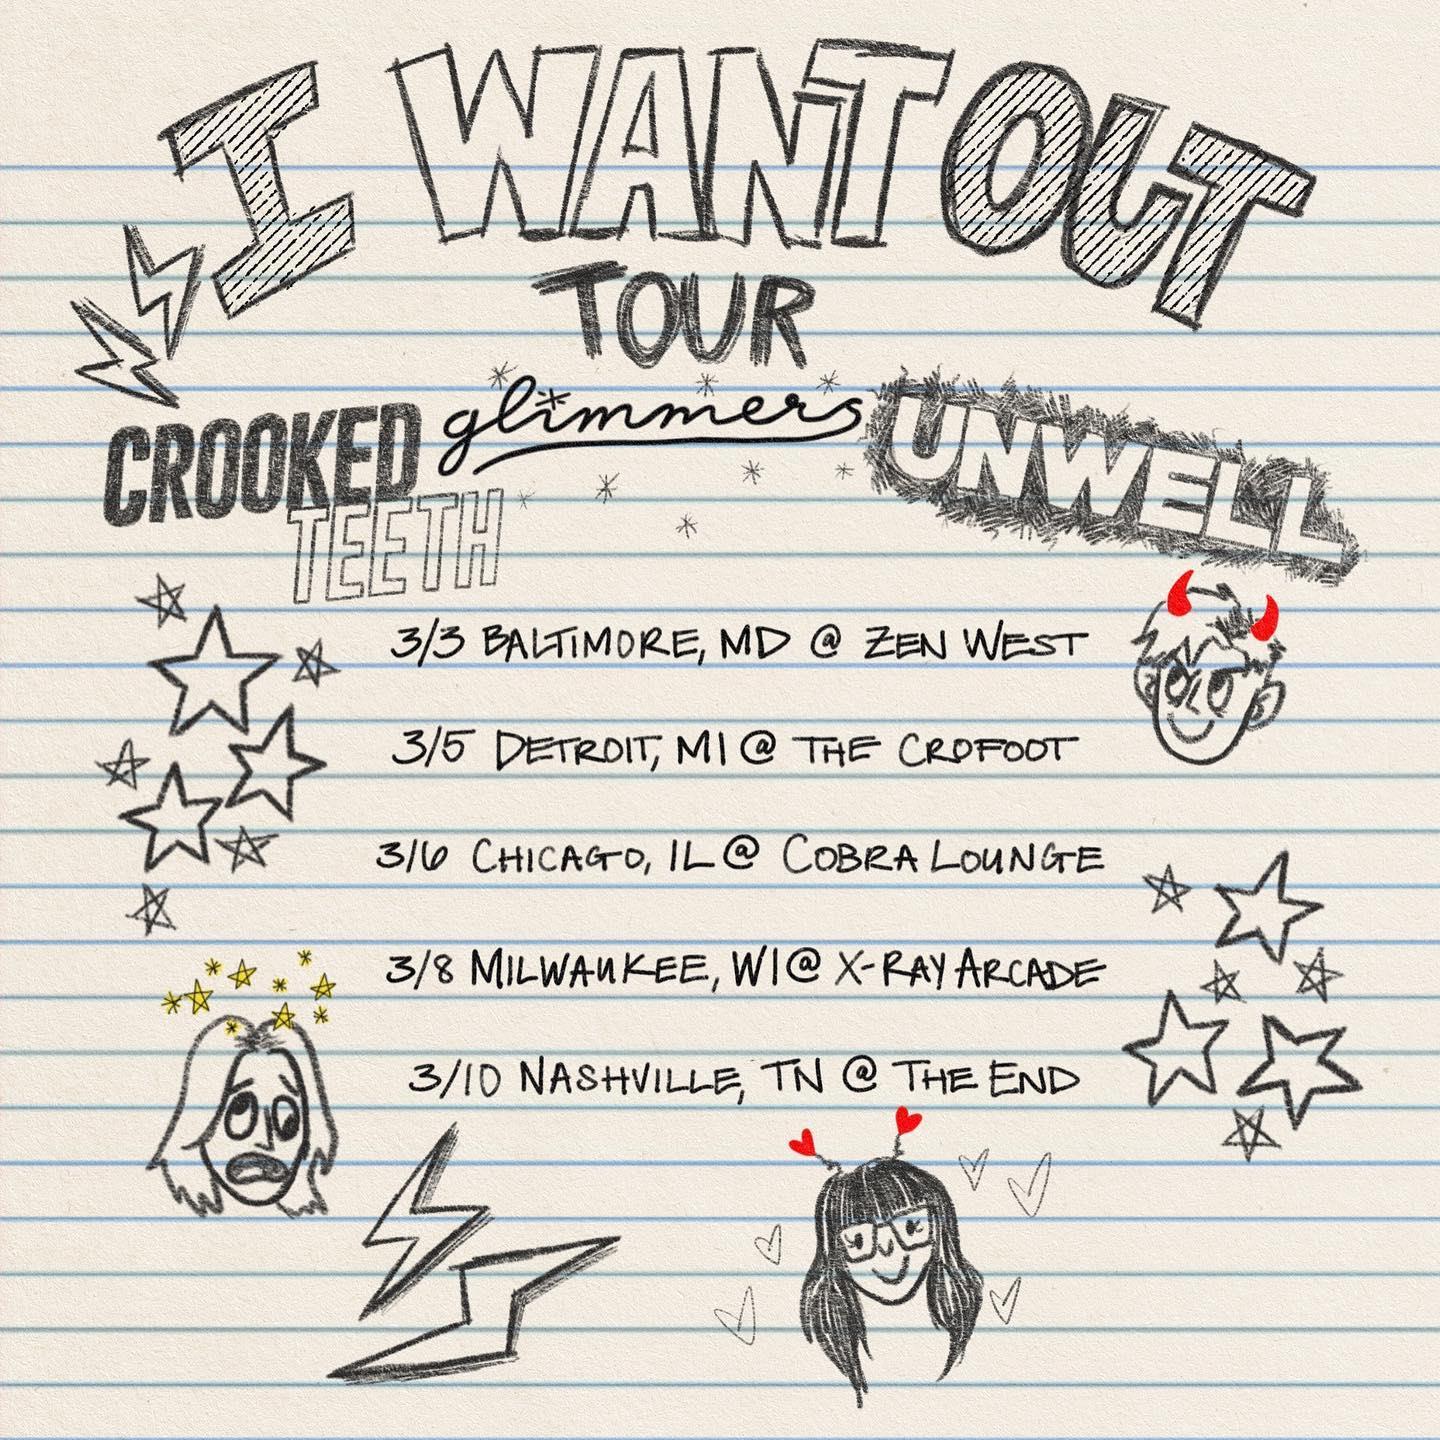 I WANT OUT
TOUR
CROOKED TEETH
glimmers
UNWELL
3/3 BALTIMORE, MD @ ZEN WEST
3/5 DETROIT, MI @ THE CROFOOT
3/6 CHICAGO, IL @ COBRA LOUNGE
3/8 MILWAUKEE, WI @ X-RAY ARCADE
3/10 NASHVILLE, TN @ THE END